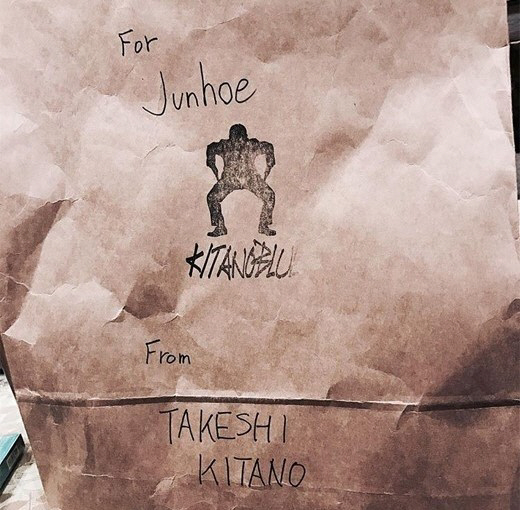 For
Junhoe
KITANOBLUE
From
TAKESHI
KITANO